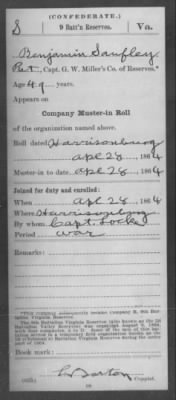 (CONFEDERATE.)
S 9 Batt'n Reserves. Va.
Benjamin Saufley
Pvt, Capt. G. W. Miller's Co. of Reserves.*
Age 49 years.
Appears on
Company Muster-in Roll
of the organization named above.
Roll dated Harrisonburg
Apl 28, 1864
Muster-in to date Apl 28, 1864
Joined for duty and enrolled:
When Apl 28, 1864
Where Harrisonburg
By whom Capt. Locke
Period War
Remarks:
Book mark:
Barton
Copyist.